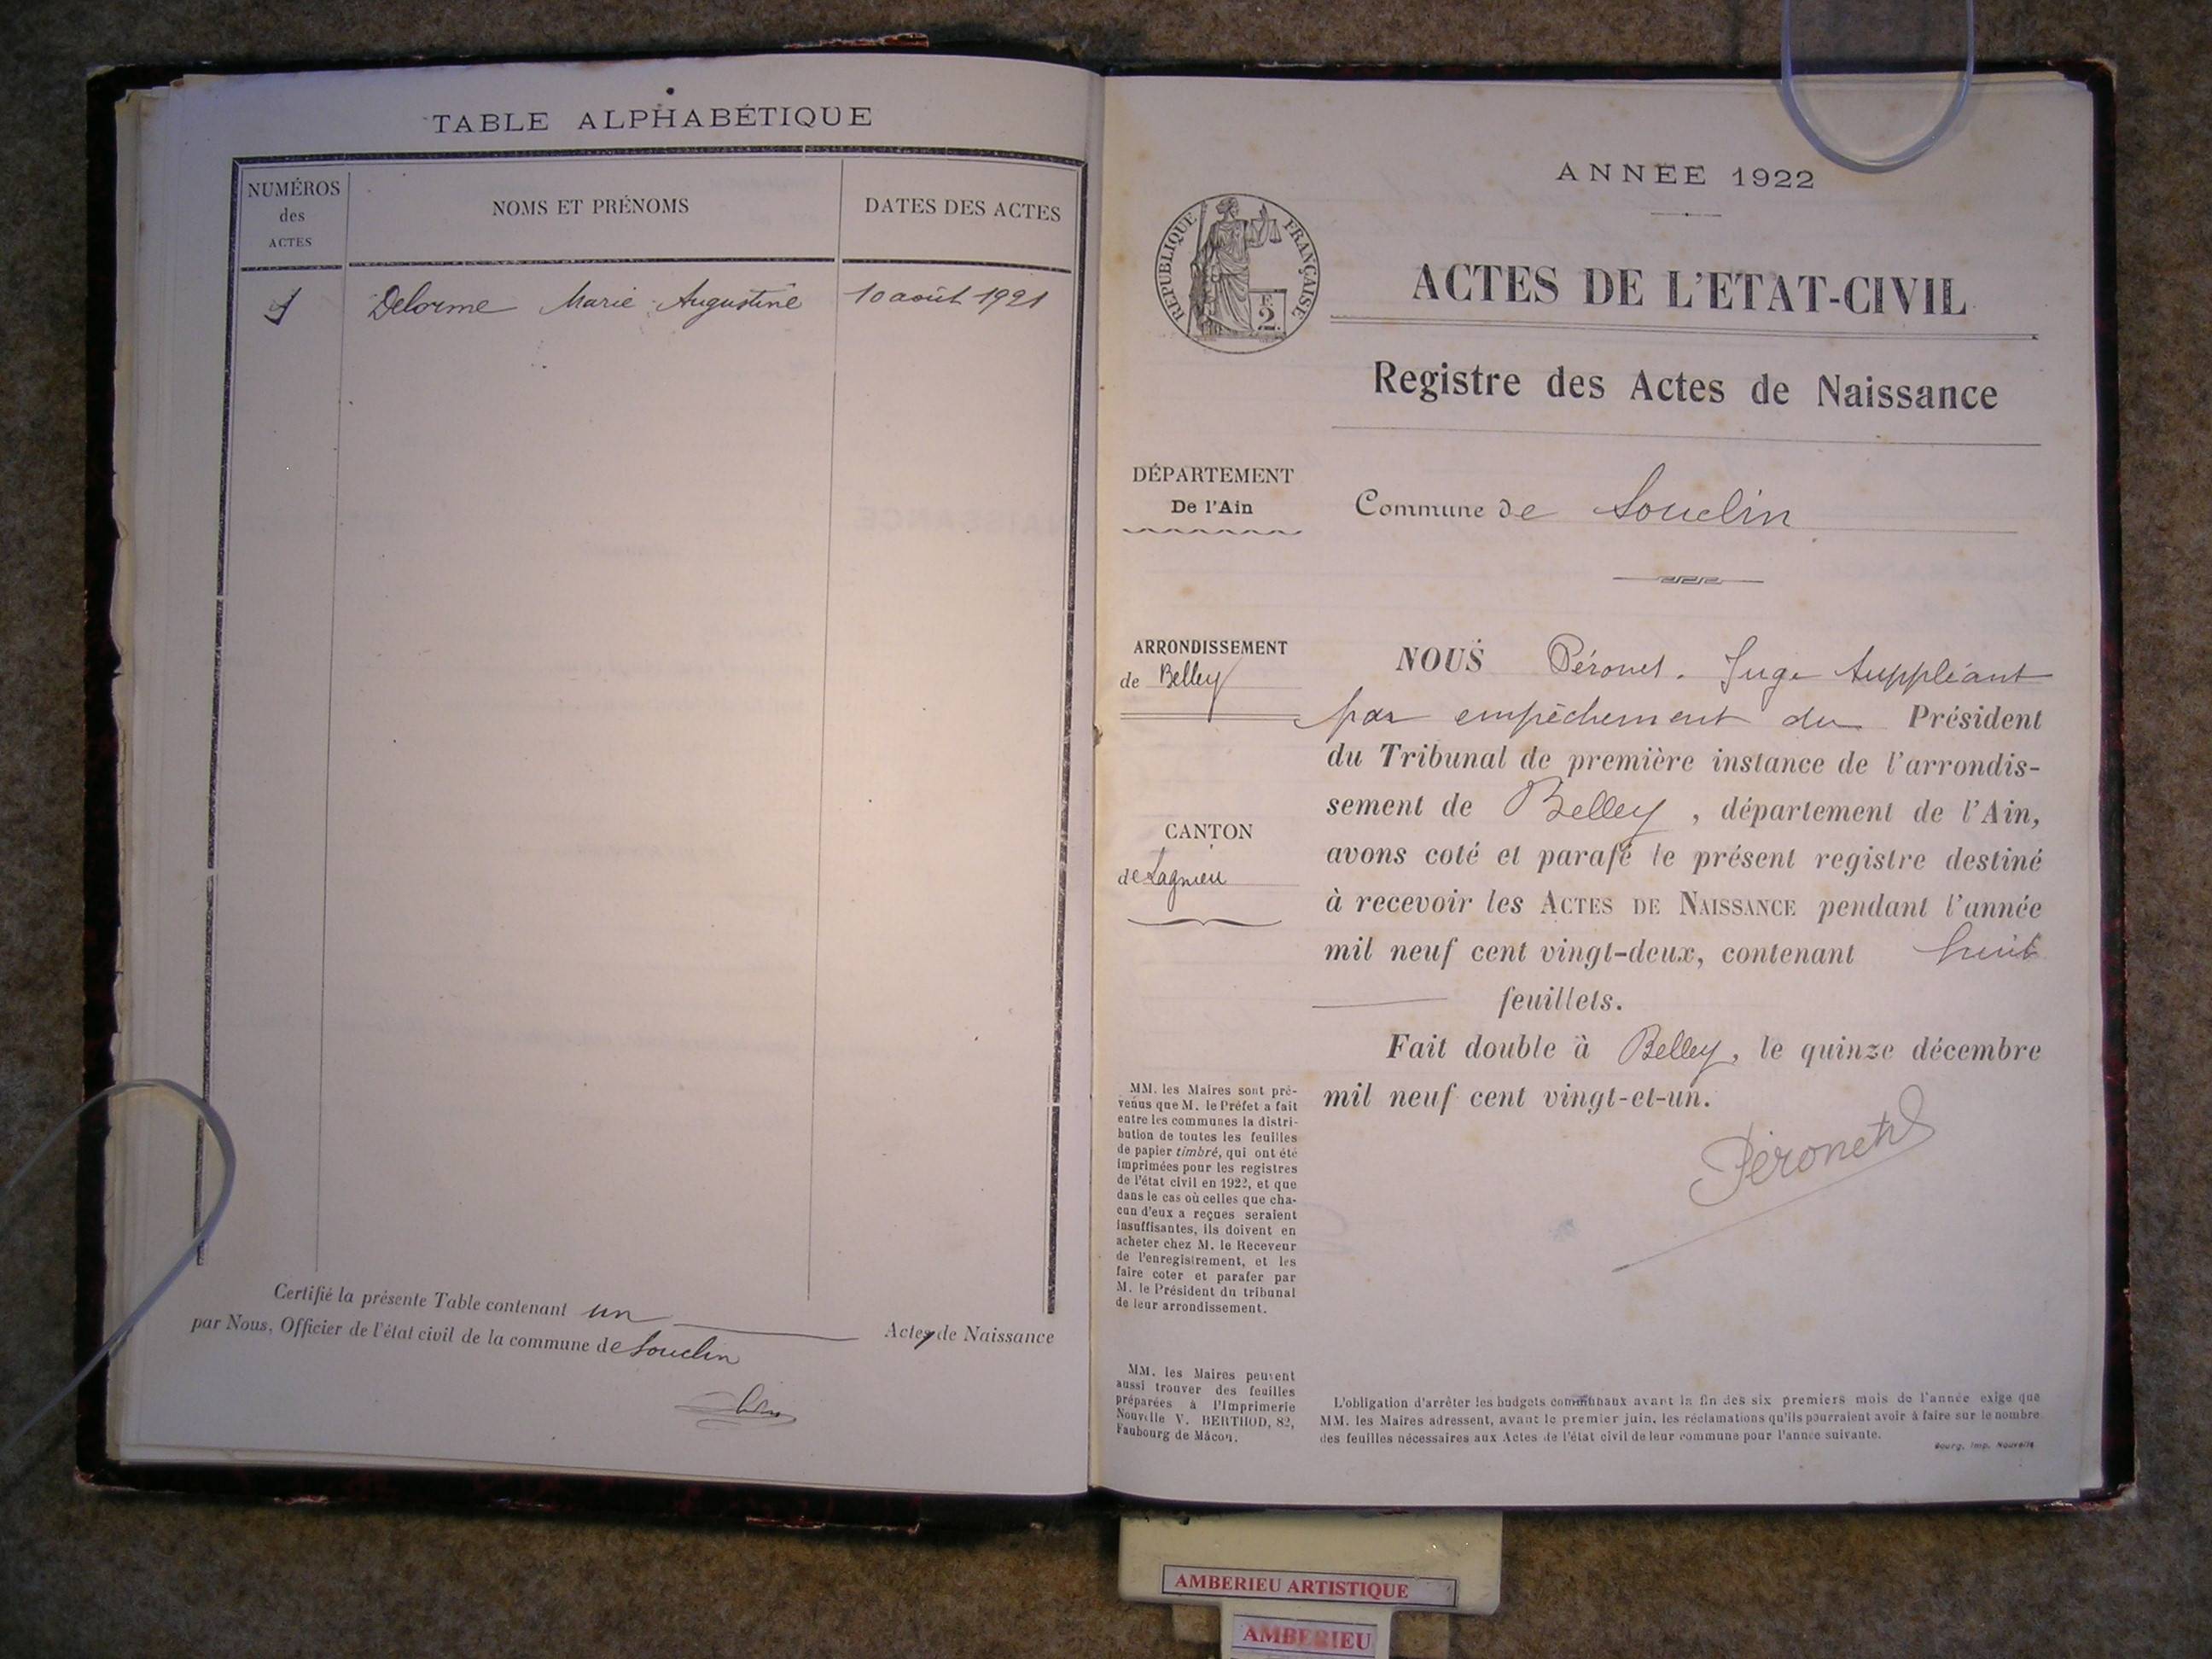 TABLE ALPHABÉTIQUE
NUMÉROS
des
ACTES
NOMS ET PRÉNOMS
DATES DES ACTES
1
Delorme Marie Augustine
10 août 1921
Certifié la présente Table contenant un Actes de Naissance
par Nous, Officier de l'état civil de la commune de Souclin
ANNÉE 1922
RÉPUBLIQUE FRANÇAISE
2
ACTES DE L'ETAT-CIVIL
Registre des Actes de Naissance
DÉPARTEMENT
De l'Ain
Commune de Souclin
ARRONDISSEMENT
de Belley
CANTON
de Lagnieu
NOUS Péronet. Juge Suppléant
par empêchement du Président
du Tribunal de première instance de l'arrondis-
sement de Belley, département de l'Ain,
avons coté et parafé le présent registre destiné
à recevoir les ACTES DE NAISSANCE pendant l'année
mil neuf cent vingt-deux, contenant huit
feuillets.
Fait double à Belley, le quinze décembre
mil neuf cent vingt-et-un.
Péronet
MM. les Maires sont pré-
venus que M. le Préfet a fait
entre les communes la distri-
bution de toutes les feuilles
de papier timbré, qui ont été
imprimées pour les registres
de l'état civil en 1922, et que
dans le cas où celles que cha-
cun d'eux a reçues seraient
insuffisantes, ils doivent en
acheter chez M. le Receveur
de l'enregistrement, et les
faire coter et parafer par
M. le Président du tribunal
de leur arrondissement.
MM. les Maires peuvent
aussi trouver des feuilles
préparées à l'Imprimerie
Nouvelle V. BERTHOD, 82,
Faubourg de Mâcon.
L'obligation d'arrêter les budgets communaux avant la fin des six premiers mois de l'année exige que
MM. les Maires adressent, avant le premier juin, les réclamations qu'ils pourraient avoir à faire sur le nombre
des feuilles nécessaires aux Actes de l'état civil de leur commune pour l'année suivante.
Bourg, Imp. Nouvelle
AMBERIEU ARTISTIQUE
AMBERIEU